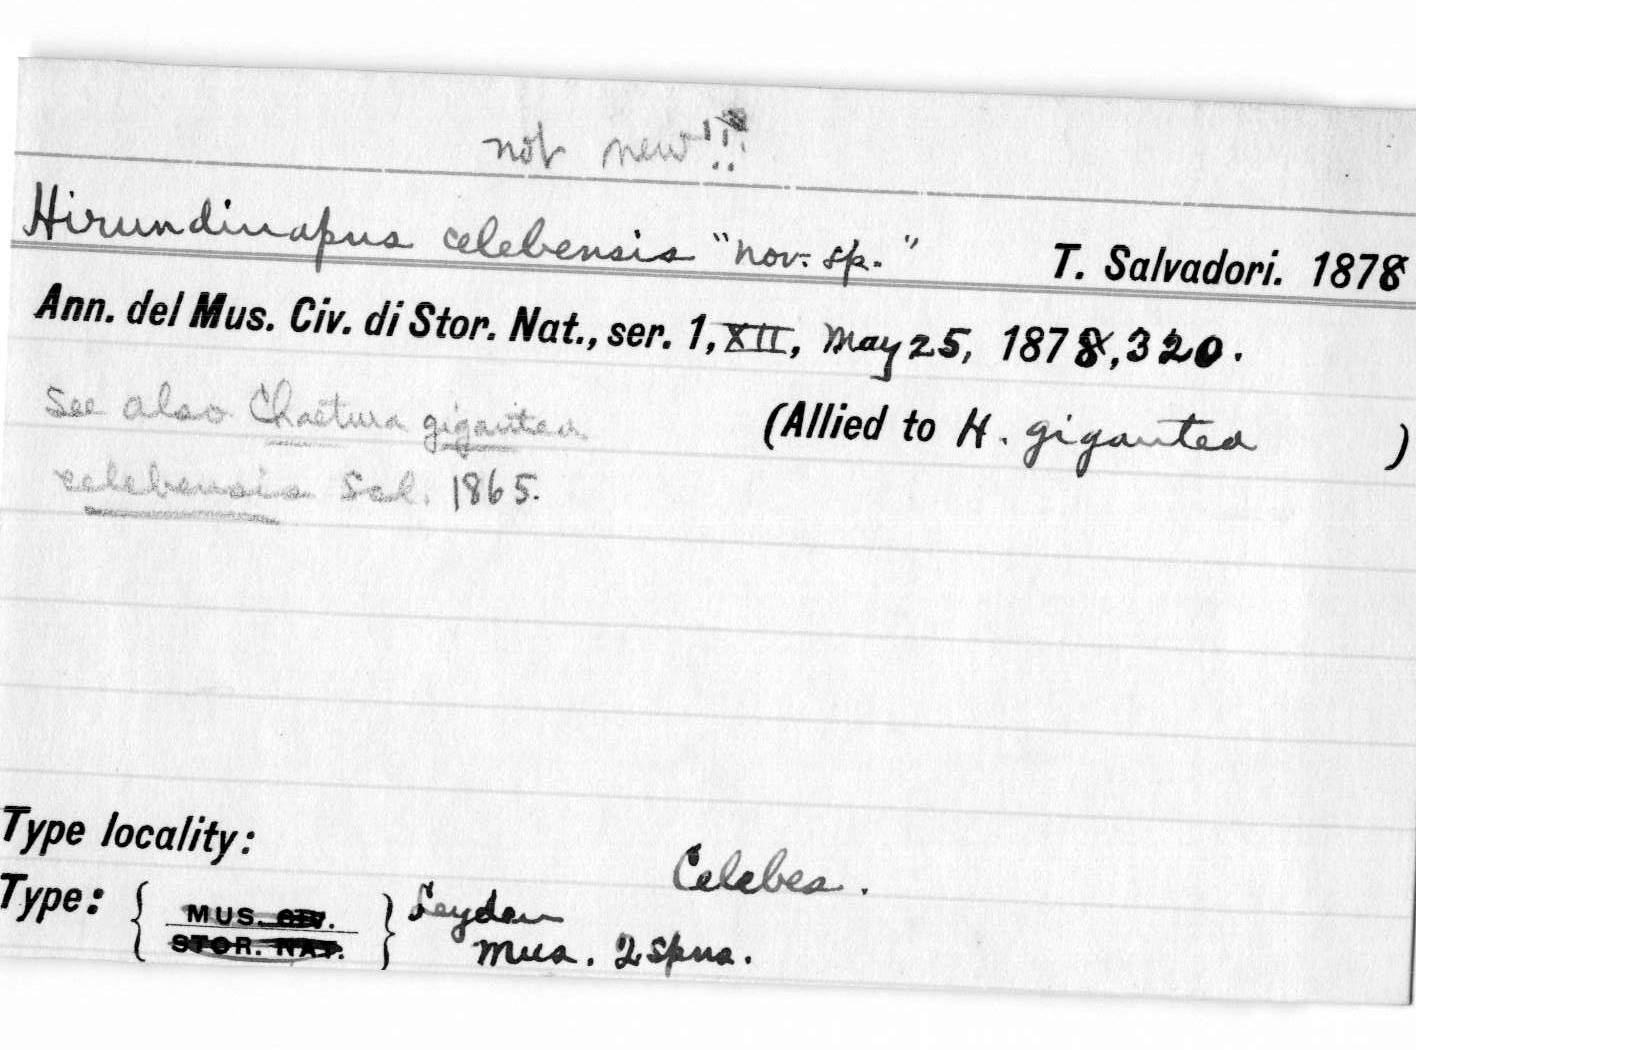 not new!!!
Hirundinapus celebensis "nov. sp." T. Salvadori. 1878
Ann. del Mus. Civ. di Stor. Nat., ser. 1, XII, May 25, 1878, 320.
See also Chaetura gigantea (Allied to H. gigantea )
celebensis Scl. 1865.
Type locality:
Celebes.
Type: { MUS. CIV. } Leyden
STOR. NAT. Mus. 2 spns.